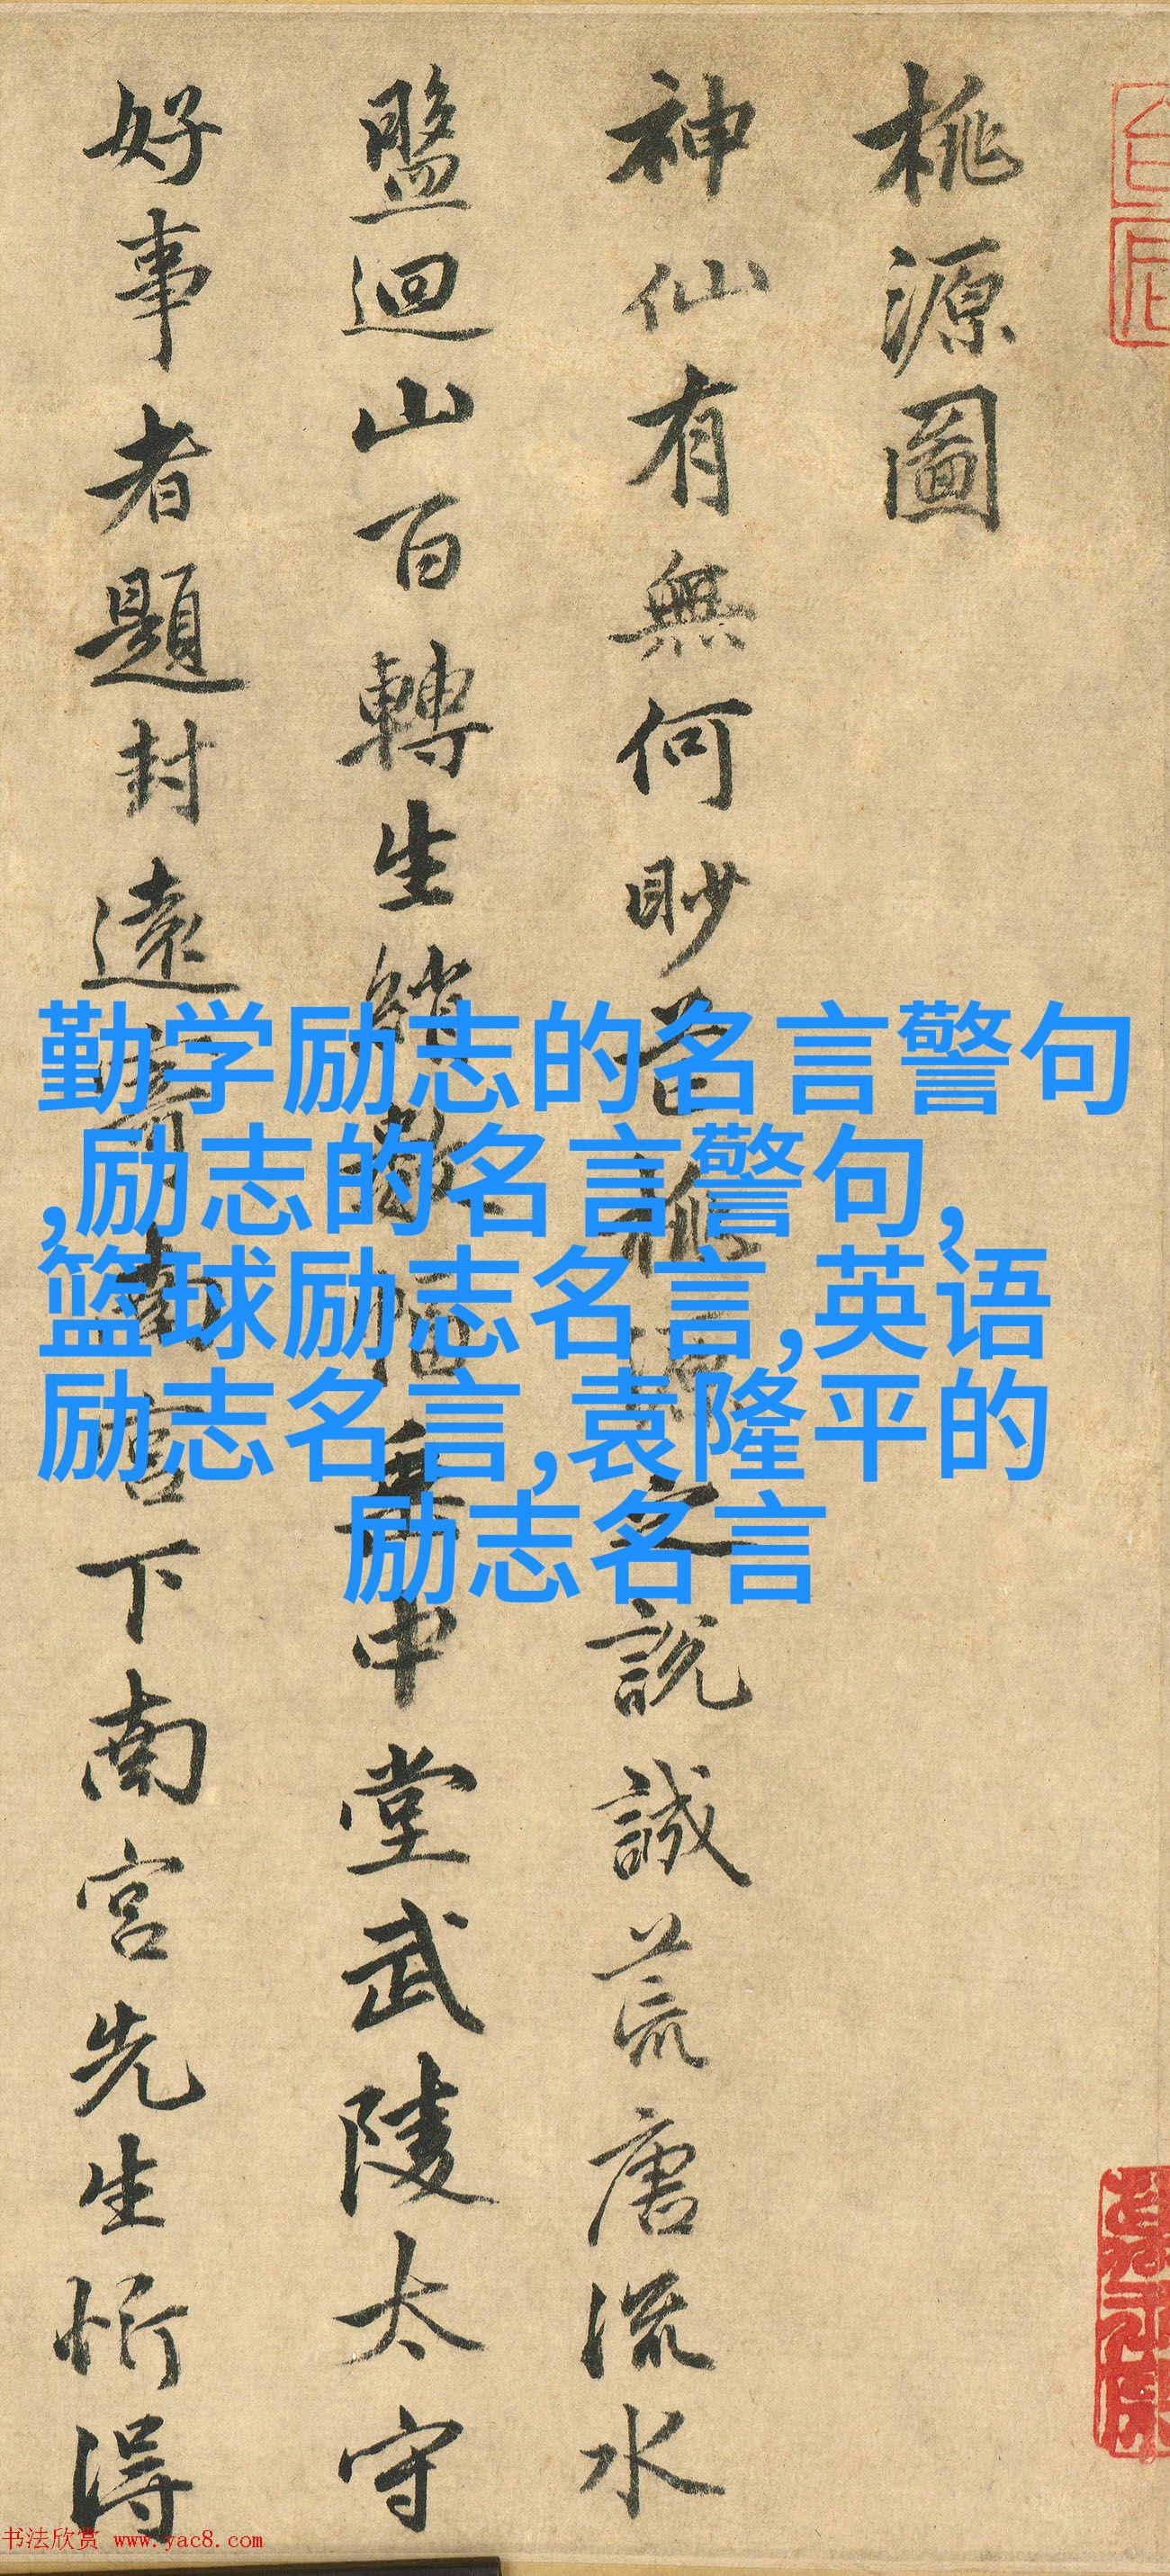 桃源圖
神仙有無何眇芒桃源之說誠荒唐流水
盤迴山百轉生綃數幅垂中堂武陵太守
好事者題封遠寄南宮下南宮先生忻得
勤学励志的名言警句
,励志的名言警句,
篮球励志名言,英语
励志名言,袁隆平的
励志名言
书法欣赏 www.yac8.com